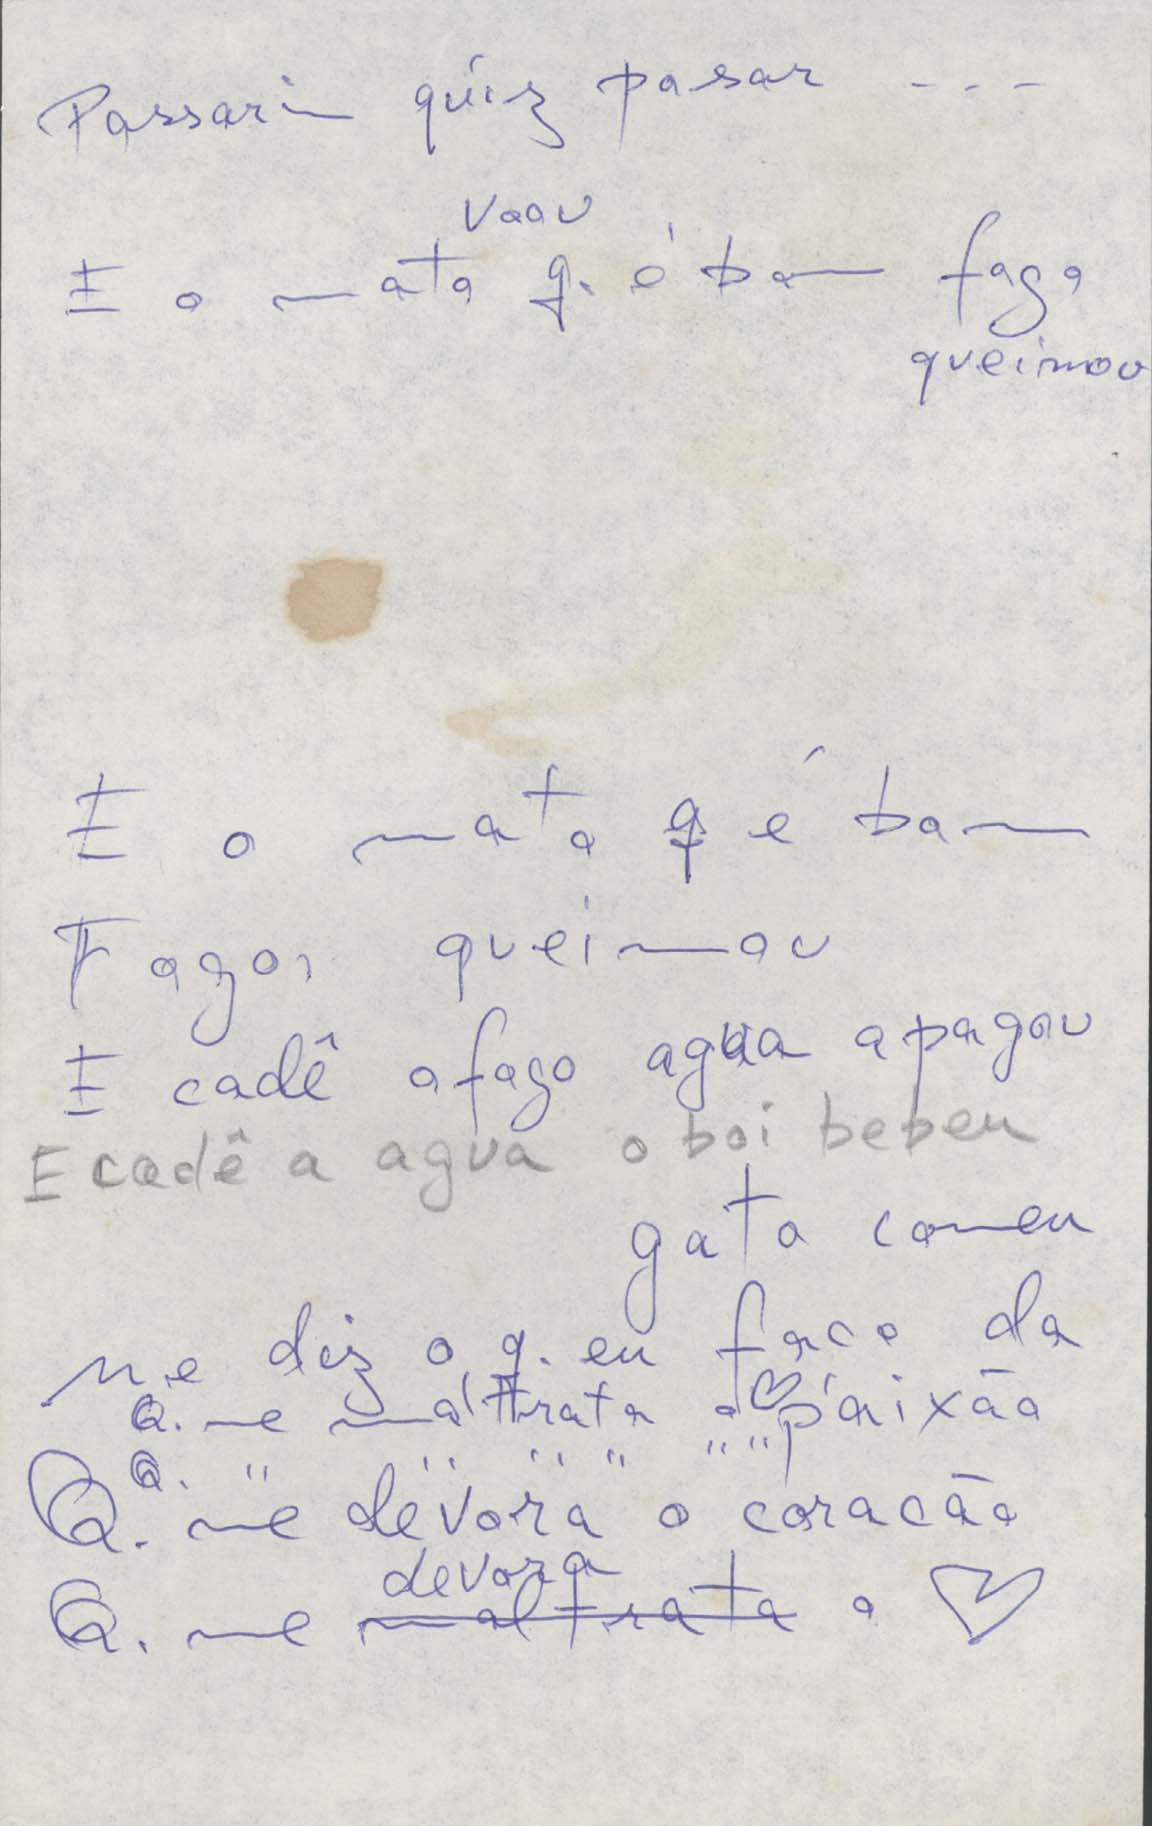 Passarim quiz pasar ---
voou
E o mato q. é bom fogo
queimou
E o mato q é bom
Fogo, queimou
E cadê o fogo agua apagou
E cadê a agua o boi bebeu
gato comeu
Me diz o q. eu faco da
Q. me maltrata o ♡ paixão
Q. " " " " " "
Q. me devora o coracão
devora
Q. me maltrata o ♡